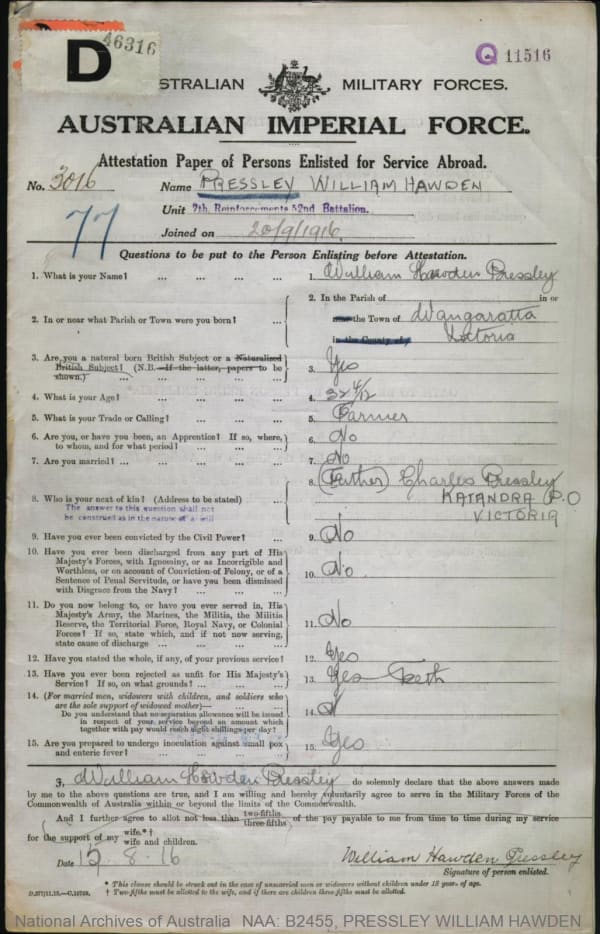 D 46316
Q 11516
AUSTRALIAN MILITARY FORCES.
AUSTRALIAN IMPERIAL FORCE.
Attestation Paper of Persons Enlisted for Service Abroad.
No. 3016 Name PRESSLEY WILLIAM HAWDEN
Unit 7th Reinforcements 52nd Battalion.
77
Joined on 20/9/1916
Questions to be put to the Person Enlisting before Attestation.
1. What is your Name? ... ... ... 1. William Hawden Pressley
2. In or near what Parish or Town were you born? ... 2. In the Parish of in or
near the Town of Wangaratta
in the County of Victoria
3. Are you a natural born British Subject or a Naturalized
British Subject? (N.B.—If the latter, papers to be
shown.) 3. Yes
4. What is your Age? 4. 32 4/12
5. What is your Trade or Calling? 5. Farmer
6. Are you, or have you been, an Apprentice? If so, where,
to whom, and for what period? 6. No
7. Are you married? ... 7. No
8. Who is your next of kin? (Address to be stated) 8. (Father) Charles Pressley
KATANDRA P.O
VICTORIA
The answer to this question shall not
be construed as in the nature of a will
9. Have you ever been convicted by the Civil Power? 9. No
10. Have you ever been discharged from any part of His
Majesty's Forces, with Ignominy, or as Incorrigible and
Worthless, or on account of Conviction of Felony, or of a
Sentence of Penal Servitude, or have you been dismissed
with Disgrace from the Navy? 10. No
11. Do you now belong to, or have you ever served in, His
Majesty's Army, the Marines, the Militia, the Militia
Reserve, the Territorial Force, Royal Navy, or Colonial
Forces? If so, state which, and if not now serving,
state cause of discharge 11. No
12. Have you stated the whole, if any, of your previous service? 12. Yes
13. Have you ever been rejected as unfit for His Majesty's
Service? If so, on what grounds? 13. Yes Teeth
14. (For married men, widowers with children, and soldiers who
are the sole support of widowed mother)—
Do you understand that no separation allowance will be issued
in respect of your service beyond an amount which
together with pay would reach eight shillings per day? 14.
15. Are you prepared to undergo inoculation against small pox
and enteric fever? 15. Yes
I, William Hawden Pressley do solemnly declare that the above answers made
by me to the above questions are true, and I am willing and hereby voluntarily agree to serve in the Military Forces of the
Commonwealth of Australia within or beyond the limits of the Commonwealth.
And I further agree to allot not less than two-fifths three-fifths of the pay payable to me from time to time during my service
for the support of my wife.*† wife and children.
Date 15-8-16
William Hawden Pressley
Signature of person enlisted.
* This clause should be struck out in the case of unmarried men or widowers without children under 18 years of age.
† Two-fifths must be allotted to the wife, and if there are children three-fifths must be allotted.
National Archives of Australia NAA: B2455, PRESSLEY WILLIAM HAWDEN